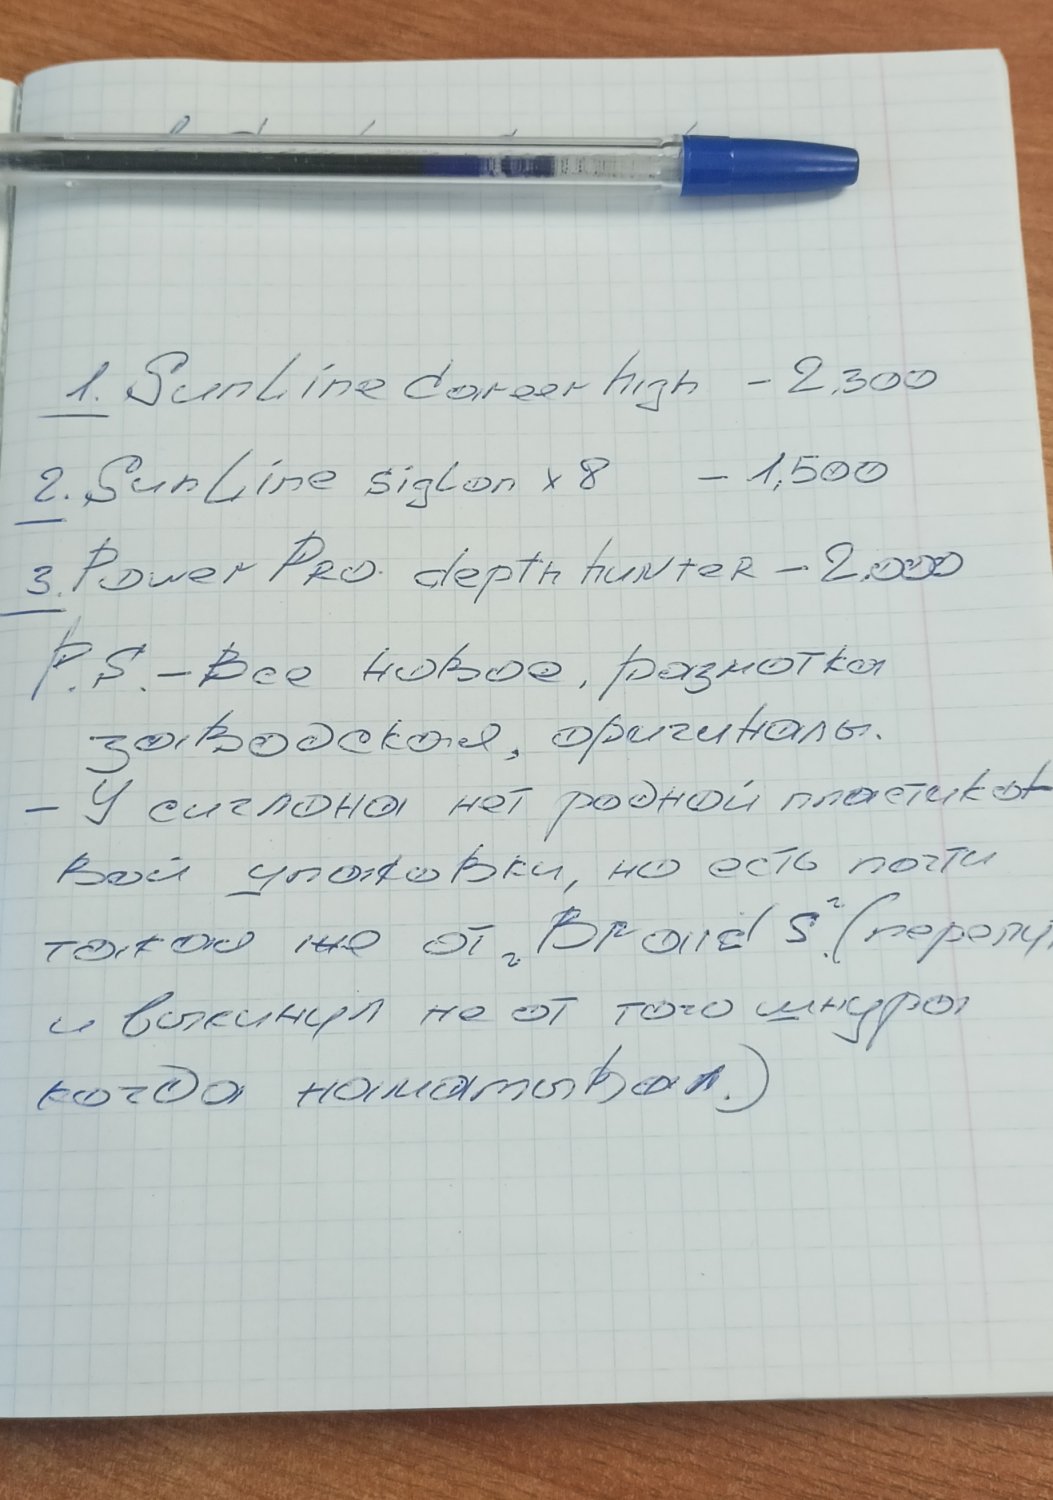 1. SunLine Career high - 2,300
2. SunLine siglon x8 - 1,500
3. Power PRO. depth hunteR - 2.000
P.S. - Все новое, размотка
заводская, оригиналы.
- У сиглона нет родной пластико-
вой упаковки, но есть почти
такая же от "Braid S" (перепу
и выкинул не от того шнура
когда наматывал.)